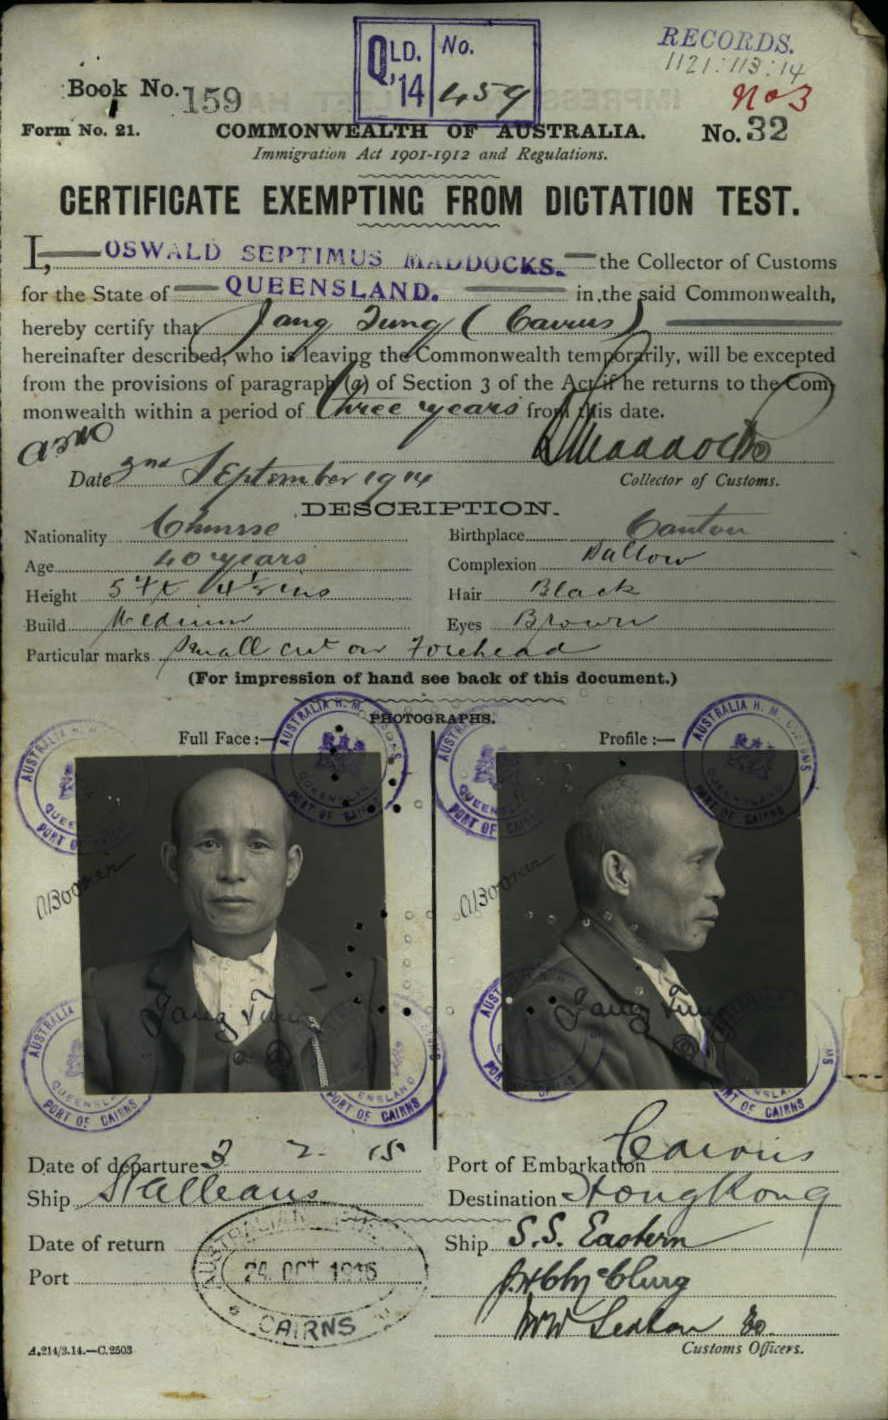 QLD. '14 No. 459
RECORDS.
1121:113:14
No 3
Book No. 159
Form No. 21.
COMMONWEALTH OF AUSTRALIA.
No. 32
Immigration Act 1901-1912 and Regulations.
CERTIFICATE EXEMPTING FROM DICTATION TEST.
I, OSWALD SEPTIMUS MADDOCKS. the Collector of Customs
for the State of QUEENSLAND. in the said Commonwealth,
hereby certify that Jang Tung (Cairns)
hereinafter described, who is leaving the Commonwealth temporarily, will be excepted
from the provisions of paragraph (a) of Section 3 of the Act if he returns to the Com-
monwealth within a period of three years from this date.
Maddocks
Date 2nd September 1914
Collector of Customs.
DESCRIPTION.
Nationality Chinese
Birthplace Canton
Age 40 years
Complexion Sallow
Height 5 ft 4½ ins
Hair Black
Build Medium
Eyes Brown
Particular marks Small cut on forehead
(For impression of hand see back of this document.)
PHOTOGRAPHS.
Full Face:—
Profile:—
AUSTRALIA H. M. CUSTOMS
QUEENSLAND
PORT OF CAIRNS
Jang Tung
Jang Tung
Date of departure 3 2 15
Port of Embarkation Cairns
Ship St Albans
Destination Hong Kong
Date of return
Ship S.S. Eastern
Port
24 OCT 1916
CAIRNS
Customs Officers.
A.214/3.14.—C.2503